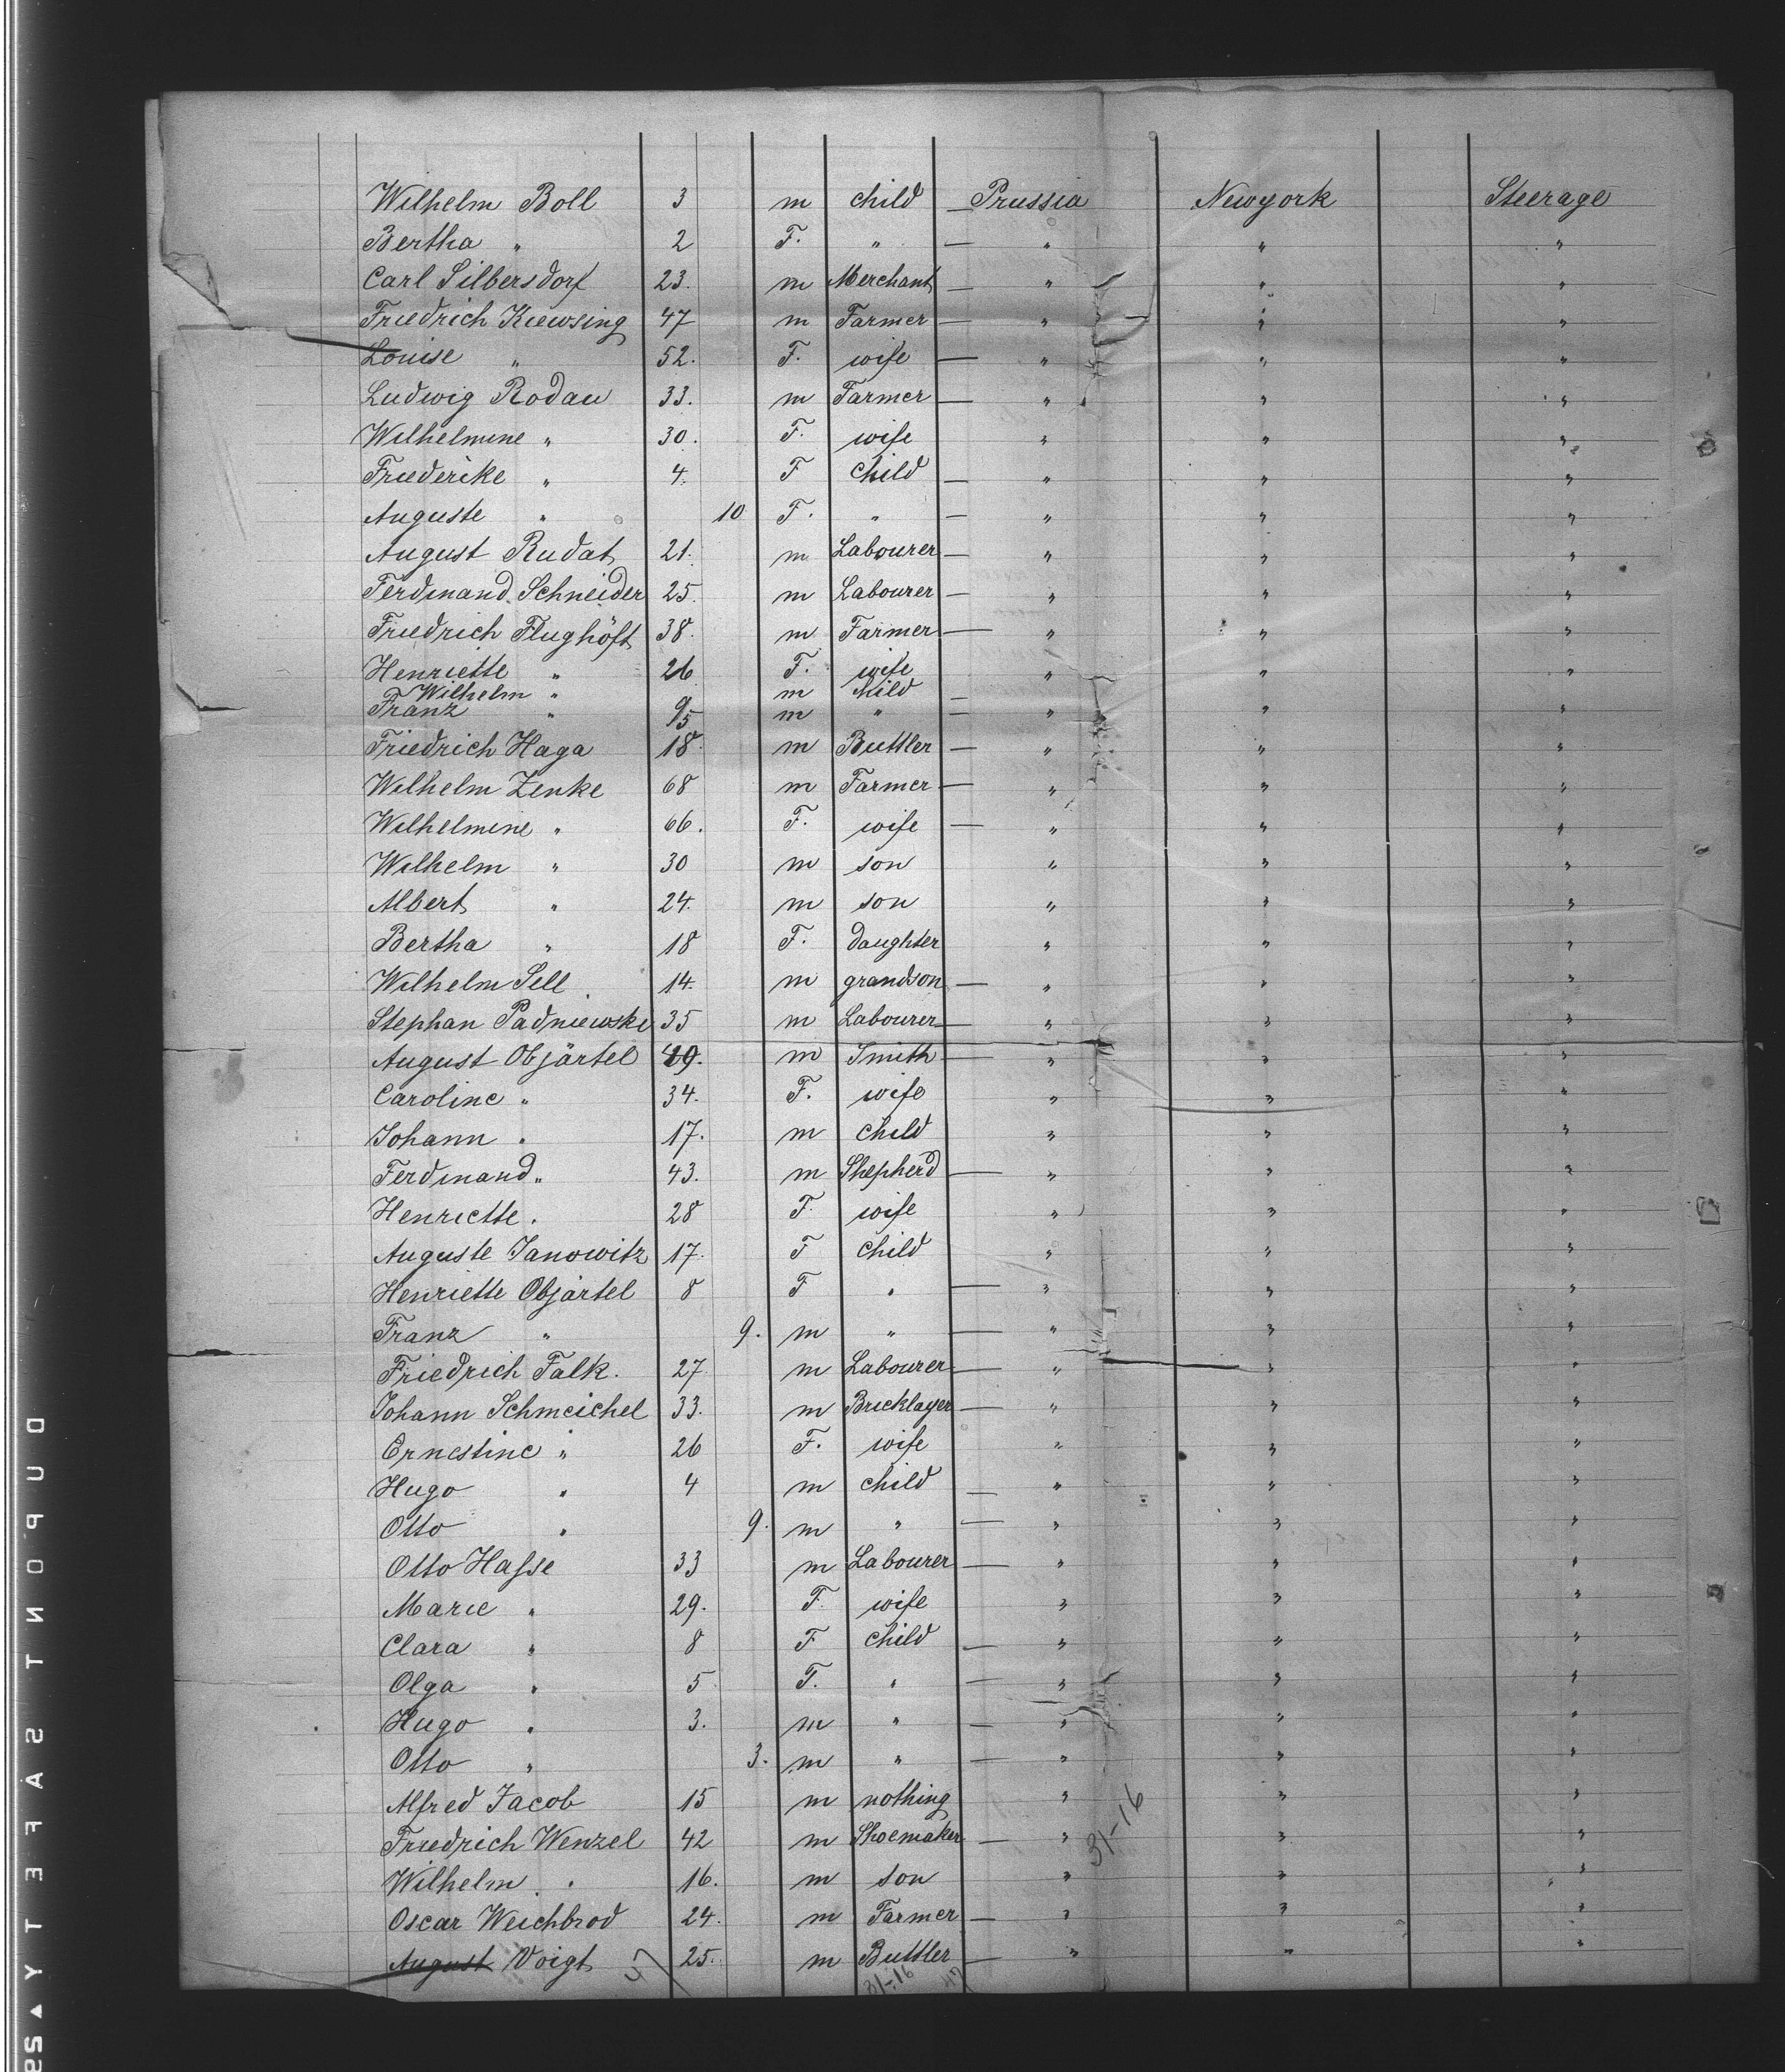 Wilhelm Boll 3 m child — Prussia Newyork Steerage
Bertha " 2 F. " — " " "
Carl Silbersdorf 23. m Merchant — " " "
Friedrich Kiewsing 47 m Farmer — " " "
Louise " 52. F. wife — " " "
Ludwig Rodau 33. m Farmer — " " "
Wilhelmine " 30. F. wife " " "
Friederike " 4. F child — " " "
Auguste " 10 F. " — " " "
August Rudat 21. m Labourer — " " "
Ferdinand Schneider 25. m Labourer — " " "
Friedrich Flughöft 38. m Farmer — " " "
Henriette " 26 F. wife " " "
Wilhelm " m child —
Franz " m " — " " "
Friedrich Haga 18. m Buttler — " " "
Wilhelm Zenke 68 m Farmer — " " "
Wilhelmine " 66. F. wife — " " "
Wilhelm " 30 m son " " "
Albert " 24. m son " " "
Bertha " 18 F. daughter " " "
Wilhelm Sell 14. m grandson — " " "
Stephan Padniewski 35 m Labourer — " " "
August Objärtel 49. m Smith — " " "
Caroline " 34. F. wife " " "
Johann " 17. m child " " "
Ferdinand " 43. m Shepherd — " " "
Henriette " 28 F. wife " " "
Auguste Janowitz 17. F child " " "
Henriette Objärtel 8 F " — " " "
Franz " 9. m " — " " "
Friedrich Falk. 27 m Labourer — " " "
Johann Schmeichel 33. m Bricklayer — " " "
Ernestine " 26 F. wife " " "
Hugo " 4 m child — " " "
Otto " 9. m " — " " "
Otto Haſse 33 m Labourer — " " "
Marie " 29. F. wife " " "
Clara " 8 F child — " " "
Olga " 5 F. " — " " "
Hugo " 3. m " — " " "
Otto " 3. m " — " " "
Alfred Jacob 15 m nothing " " "
Friedrich Wenzel 42 m Shoemaker — " " "
Wilhelm " 16. m son " " "
Oscar Weichbrod 24. m Farmer — " " "
August Voigt 25. m Buttler — " " "
47 31-16 47
31-16
DUPONT SAFETY